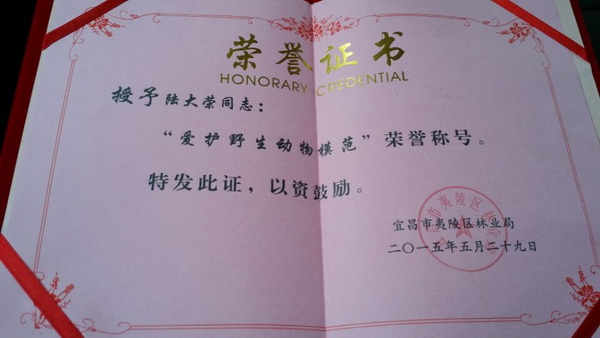 荣誉证书
HONORARY CREDENTIAL
授予陆大荣同志：
“爱护野生动物模范”荣誉称号。
特发此证，以资鼓励。
宜昌市夷陵区林业局
二〇一五年五月二十九日